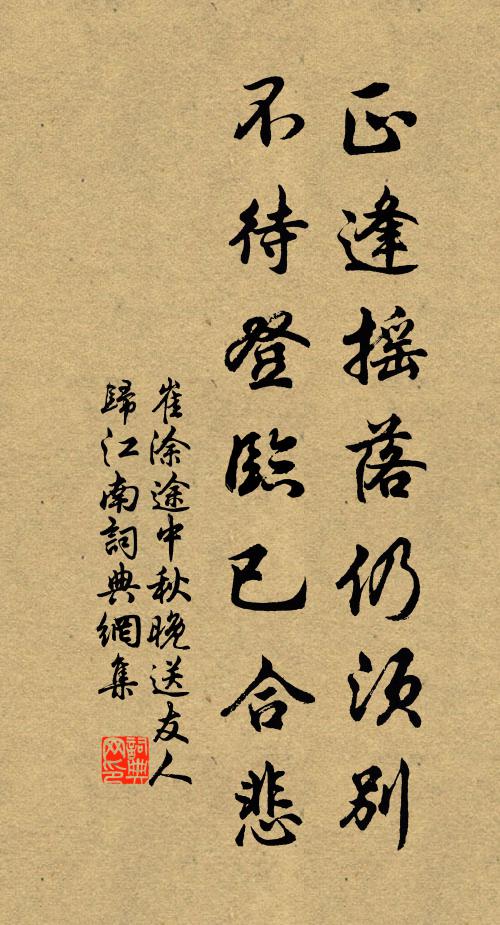 正逢摇落仍须别
不待登臨已合悲
崔涂途中秋晚送友人
歸江南詞典網集
詞典
网印